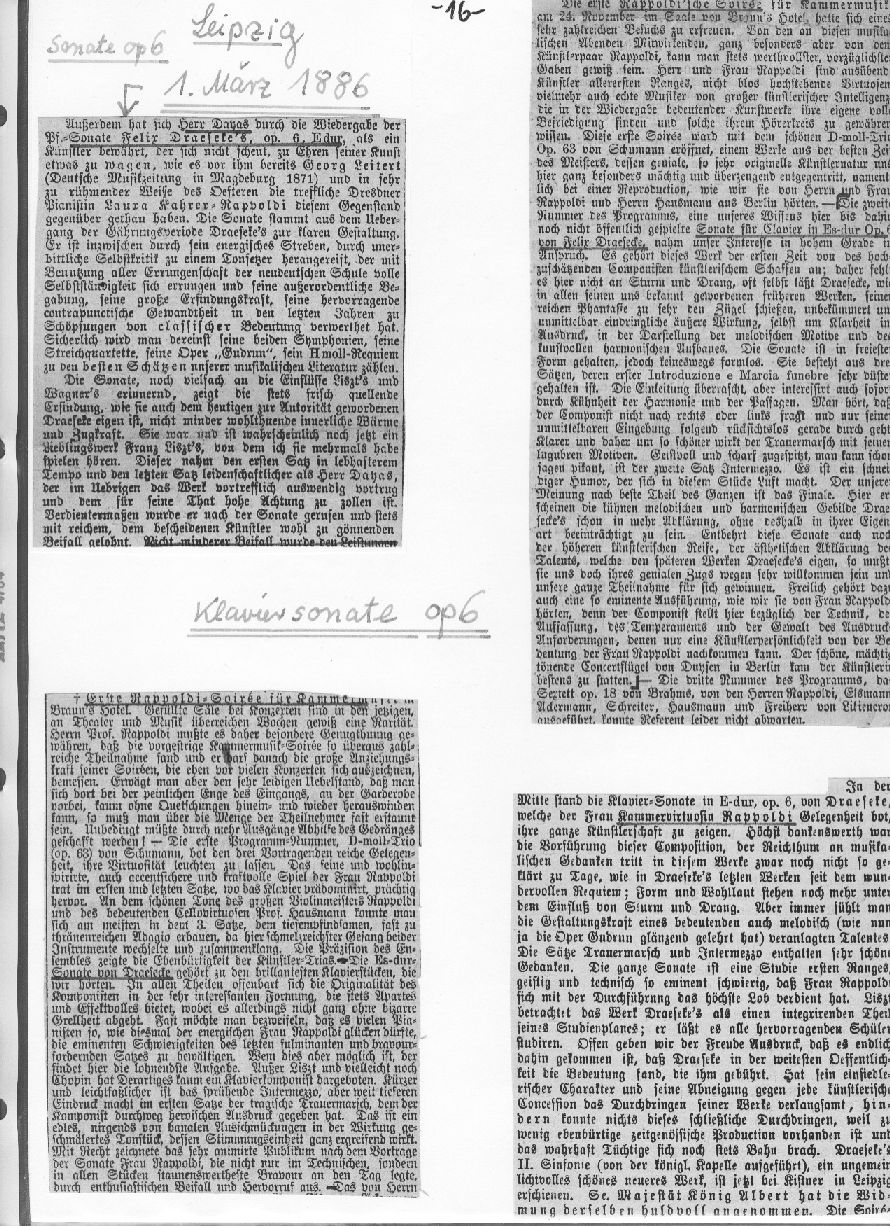 -16-
Leipzig
Sonate op 6
1. März 1886
Außerdem hat sich Herr Dayas durch die Wiedergabe der
Pf.-Sonate Felix Draeseke's, op. 6, Edur, als ein
Künstler bewährt, der sich nicht scheut, zu Ehren seiner Kunst
etwas zu wagen, wie es vor ihm bereits Georg Leitert
(Deutsche Musikzeitung in Magdeburg 1871) und in sehr
zu rühmender Weise des Oefteren die treffliche Dresdner
Pianistin Laura Kahrer-Rappoldi diesem Gegenstand
gegenüber gethan haben. Die Sonate stammt aus dem Ueber-
gang der Gährungsperiode Draeseke's zur klaren Gestaltung.
Er ist inzwischen durch sein energisches Streben, durch uner-
bittliche Selbstkritik zu einem Tonsetzer herangereift, der mit
Benutzung aller Errungenschaft der neudeutschen Schule volle
Selbstständigkeit sich errungen und seine außerordentliche Be-
gabung, seine große Erfindungskraft, seine hervorragende
contrapunctische Gewandtheit in den letzten Jahren zu
Schöpfungen von classischer Bedeutung verwerthet hat.
Sicherlich wird man dereinst seine beiden Symphonien, seine
Streichquartette, seine Oper „Gudrun", sein Hmoll-Requiem
zu den besten Schätzen unserer musikalischen Literatur zählen.
Die Sonate, noch vielfach an die Einflüsse Liszt's und
Wagner's erinnernd, zeigt die stets frisch quellende
Erfindung, wie sie auch dem heutigen zur Autorität gewordenen
Draeseke eigen ist, nicht minder wohlthuende innerliche Wärme
und Zugkraft. Sie war und ist wahrscheinlich noch jetzt ein
Lieblingswerk Franz Liszt's, von dem ich sie mehrmals habe
spielen hören. Dieser nahm den ersten Satz in lebhafterem
Tempo und den letzten Satz leidenschaftlicher als Herr Dayas,
der im Uebrigen das Werk vortrefflich auswendig vortrug
und dem für seine That hohe Achtung zu zollen ist.
Verdientermaßen wurde er nach der Sonate gerufen und stets
mit reichem, dem bescheidenen Künstler wohl zu gönnenden
Beifall gelohnt. Nicht minderer Beifall wurde den Leistungen
Klaviersonate op 6
† Erste Rappoldi-Soirée für Kammerm
Braun's Hotel. Gefüllte Säle bei Konzerten sind in den jetzigen,
an Theater und Musik überreichen Wochen gewiß eine Rarität.
Herrn Prof. Rappoldi mußte es daher besondere Genugthuung ge-
währen, daß die vorgestrige Kammermusik-Soirée so überaus zahl-
reiche Theilnahme fand und er darf danach die große Anziehungs-
kraft seiner Soiréen, die eben vor vielen Konzerten sich auszeichnen,
bemessen. Erwägt man aber den sehr leidigen Uebelstand, daß man
sich dort bei der peinlichen Enge des Eingangs, an der Garderobe
vorbei, kaum ohne Quetschungen hinein- und wieder herauswinden
kann, so muß man über die Menge der Theilnehmer fast erstaunt
sein. Unbedingt müßte durch mehr Ausgänge Abhilfe des Gedränges
geschafft werden! — Die erste Programm-Nummer, D-moll-Trio
(op. 63) von Schumann, bot den drei Vortragenden reiche Gelegen-
heit, ihre Virtuosität leuchten zu lassen. Das feine und wohlin-
wirirte, auch accentsichere und kraftvolle Spiel der Frau Rappoldi
trat im ersten und letzten Satze, wo das Klavier prädominirt, prächtig
hervor. An dem schönen Tone des großen Violinmeisters Rappoldi
und des bedeutenden Cellovirtuosen Prof. Hausmann konnte man
sich am meisten in dem 3. Satze, dem tiefempfindsamen, fast zu
thränenreichen Adagio erbauen, da hier schmelzreichster Gesang beider
Instrumente wechselte und zusammenklang. Die Präzision des En-
sembles zeigte die Ebenbürtigkeit der Künstler-Trias. — Die Es-dur-
Sonate von Draesecke gehört zu den brillantesten Klavierstücken, die
wir hörten. In allen Theilen offenbart sich die Originalität des
Komponisten in der sehr interessanten Formung, die stets Apartes
und Effektvolles bietet, wobei es allerdings nicht ganz ohne bizarre
Grellheit abgeht. Fast möchte man bezweifeln, daß es vielen Pia-
nisten so, wie diesmal der energischen Frau Rappoldi glücken dürfte,
die eminenten Schwierigkeiten des letzten fulminanten und bravour-
fordernden Satzes zu bewältigen. Wem dies aber möglich ist, der
findet hier die lohnendste Aufgabe. Außer Liszt und vielleicht noch
Chopin hat Derartiges kaum ein Klavierkomponist dargeboten. Kürzer
und leichtfaßlicher ist das sprühende Intermezzo, aber weit tieferen
Eindruck macht im ersten Satze der tragische Trauermarsch, dem der
Komponist durchweg heroischen Ausdruck gegeben hat. Das ist ein
edles, nirgends von banalen Ausschmückungen in der Wirkung ge-
schmälertes Tonstück, dessen Stimmungseinheit ganz ergreifend wirkt.
Mit Recht zeichnete das sehr animirte Publikum nach dem Vortrage
der Sonate Frau Rappoldi, die nicht nur im Technischen, sondern
in allen Stücken staunenswertheste Bravour an den Tag legte,
durch enthusiastischen Beifall und Hervorruf aus. — Das von Herrn
Die erste Rappoldi'sche Soirée für Kammermusik
am 24. November im Saale von Braun's Hotel, hatte sich eines
sehr zahlreichen Besuchs zu erfreuen. Von den an diesen musika-
lischen Abenden Mitwirkenden, ganz besonders aber von dem
Künstlerpaar Rappoldi, kann man stets werthvollster, vorzüglichster
Gaben gewiß sein. Herr und Frau Rappoldi sind ausübende
Künstler allerersten Ranges, nicht blos hochstehende Virtuosen,
vielmehr auch echte Musiker von großer künstlerischer Intelligenz
die in der Wiedergabe bedeutender Kunstwerke ihre eigene volle
Befriedigung finden und solche ihrem Hörerkreis zu gewähren
wissen. Diese erste Soirée ward mit dem schönen D-moll-Trio
Op. 63 von Schumann eröffnet, einem Werke aus der besten Zeit
des Meisters, dessen geniale, so sehr originelle Künstlernatur uns
hier ganz besonders mächtig und überzeugend entgegentritt, nament-
lich bei einer Reproduction, wie wir sie von Herrn und Frau
Rappoldi und Herrn Hausmann aus Berlin hörten. — Die zweite
Nummer des Programms, eine unseres Wissens hier bis dahin
noch nicht öffentlich gespielte Sonate für Clavier in Es-dur Op. 6
von Felix Draesecke, nahm unser Interesse in hohem Grade in
Anspruch. Es gehört dieses Werk der ersten Zeit von des hoch-
zuschätzenden Componisten künstlerischem Schaffen an; daher fehlt
es hier nicht an Sturm und Drang, oft selbst läßt Draesecke, wie
in allen seinen uns bekannt gewordenen früheren Werken, seiner
reichen Phantasie zu sehr den Zügel schießen, unbekümmert um
unmittelbar eindringliche äußere Wirkung, selbst um Klarheit im
Ausdruck, in der Darstellung der melodischen Motive und des
kunstvollen harmonischen Aufbaues. Die Sonate ist in freiester
Form gehalten, jedoch keineswegs formlos. Sie besteht aus drei
Sätzen, deren erster Introduzione e Marcia funebre sehr düster
gehalten ist. Die Einleitung überrascht, aber interessirt auch sofort
durch Kühnheit der Harmonie und der Passagen. Man hört, daß
der Componist nicht nach rechts oder links fragt und nur seiner
unmittelbaren Eingebung folgend rücksichtslos gerade durch geht.
Klarer und daher um so schöner wirkt der Trauermarsch mit seinen
lugubren Motiven. Geistvoll und scharf zugespitzt, man kann schon
sagen pikant, ist der zweite Satz Intermezzo. Es ist ein schnei-
diger Humor, der sich in diesem Stücke Luft macht. Der unserer
Meinung nach beste Theil des Ganzen ist das Finale. Hier er-
scheinen die kühnen melodischen und harmonischen Gebilde Drae-
secke's schon in mehr Abklärung, ohne deshalb in ihrer Eigen-
art beeinträchtigt zu sein. Entbehrt diese Sonate auch noch
der höheren künstlerischen Reife, der ästhetischen Abklärung des
Talents, welche den späteren Werken Draesecke's eigen, so mußte
sie uns doch ihres genialen Zugs wegen sehr willkommen sein und
unsere ganze Theilnahme für sich gewinnen. Freilich gehört dazu
auch eine so eminente Ausführung, wie wir sie von Frau Rappoldi
hörten, denn der Componist stellt hier bezüglich der Technik, der
Auffassung, des Temperaments und der Gewalt des Ausdrucks
Anforderungen, denen nur eine Künstlerpersönlichkeit von der Be-
deutung der Frau Rappoldi nachkommen kann. Der schöne, mächtig
tönende Concertflügel von Duysen in Berlin kam der Künstlerin
bestens zu statten. — Die dritte Nummer des Programms, das
Sextett op. 18 von Brahms, von den Herren Rappoldi, Elsmann
Ackermann, Schreiter, Hausmann und Freiherr von Liliencron
ausgeführt, konnte Referent leider nicht abwarten.
In der
Mitte stand die Klavier-Sonate in E-dur, op. 6, von Draeseke,
welche der Frau Kammervirtuosin Rappoldi Gelegenheit bot,
ihre ganze Künstlerschaft zu zeigen. Höchst dankenswerth war
die Vorführung dieser Composition, der Reichthum an musika-
lischen Gedanken tritt in diesem Werke zwar noch nicht so ge-
klärt zu Tage, wie in Draeseke's letzten Werken seit dem wun-
dervollen Requiem; Form und Wohllaut stehen noch mehr unter
dem Einfluß von Sturm und Drang. Aber immer fühlt man
die Gestaltungskraft eines bedeutenden auch melodisch (wie nun
ja die Oper Gudrun glänzend gelehrt hat) veranlagten Talentes.
Die Sätze Trauermarsch und Intermezzo enthalten sehr schöne
Gedanken. Die ganze Sonate ist eine Studie ersten Ranges,
geistig und technisch so eminent schwierig, daß Frau Rappoldi
sich mit der Durchführung das höchste Lob verdient hat. Liszt
betrachtet das Werk Draeseke's als einen integrirenden Theil
seines Studienplanes; er läßt es alle hervorragenden Schüler
studiren. Offen geben wir der Freude Ausdruck, daß es endlich
dahin gekommen ist, daß Draeseke in der weitesten Oeffentlich-
keit die Bedeutung fand, die ihm gebührt. Hat sein einsiedle-
rischer Charakter und seine Abneigung gegen jede künstlerische
Concession das Durchbringen seiner Werke verlangsamt, hin-
dern konnte nichts dieses schließliche Durchdringen, weil zu
wenig ebenbürtige zeitgenössische Production vorhanden ist und
das wahrhaft Tüchtige sich noch stets Bahn brach. Draeseke's
II. Sinfonie (von der königl. Kapelle aufgeführt), ein ungemein
lichtvolles schönes neueres Werk, ist jetzt bei Kistner in Leipzig
erschienen. Se. Majestät König Albert hat die Wid-
mung derselben huldvoll angenommen. Die Soirée